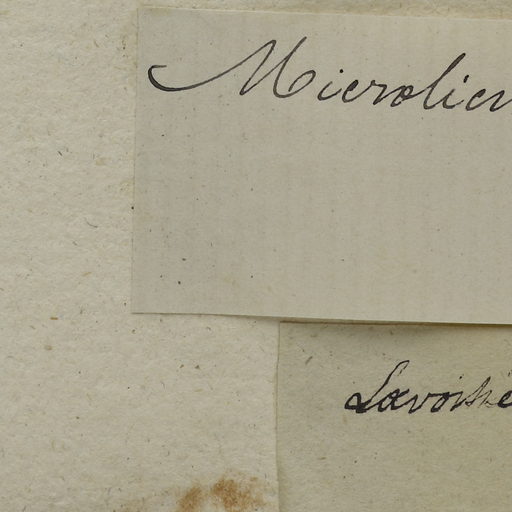 Microlicn
Lavoisie